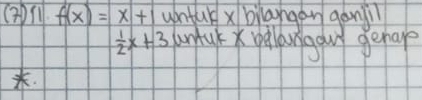 (7) 11. f(x) = x + 1 untuk x bilangan ganjil
½x + 3 untuk x bilangan genap
*.